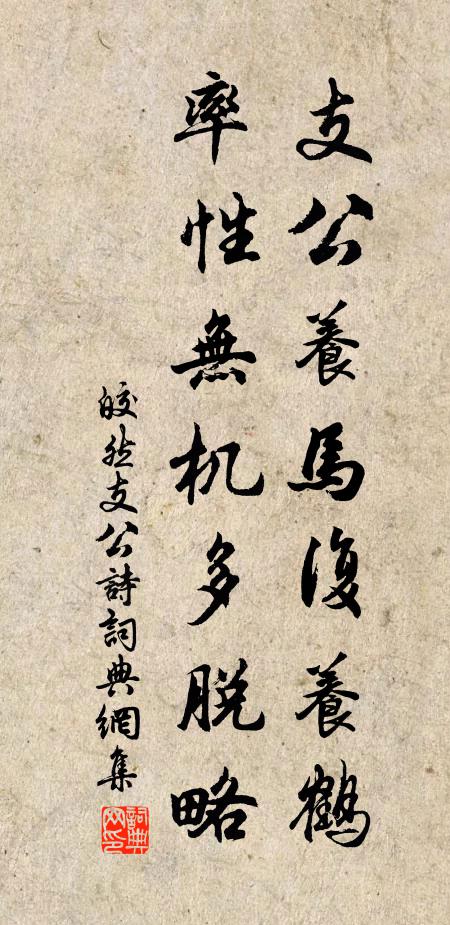 支公養馬復養鶴
率性無机多脱略
皎然支公詩詞典網集
詞典网印